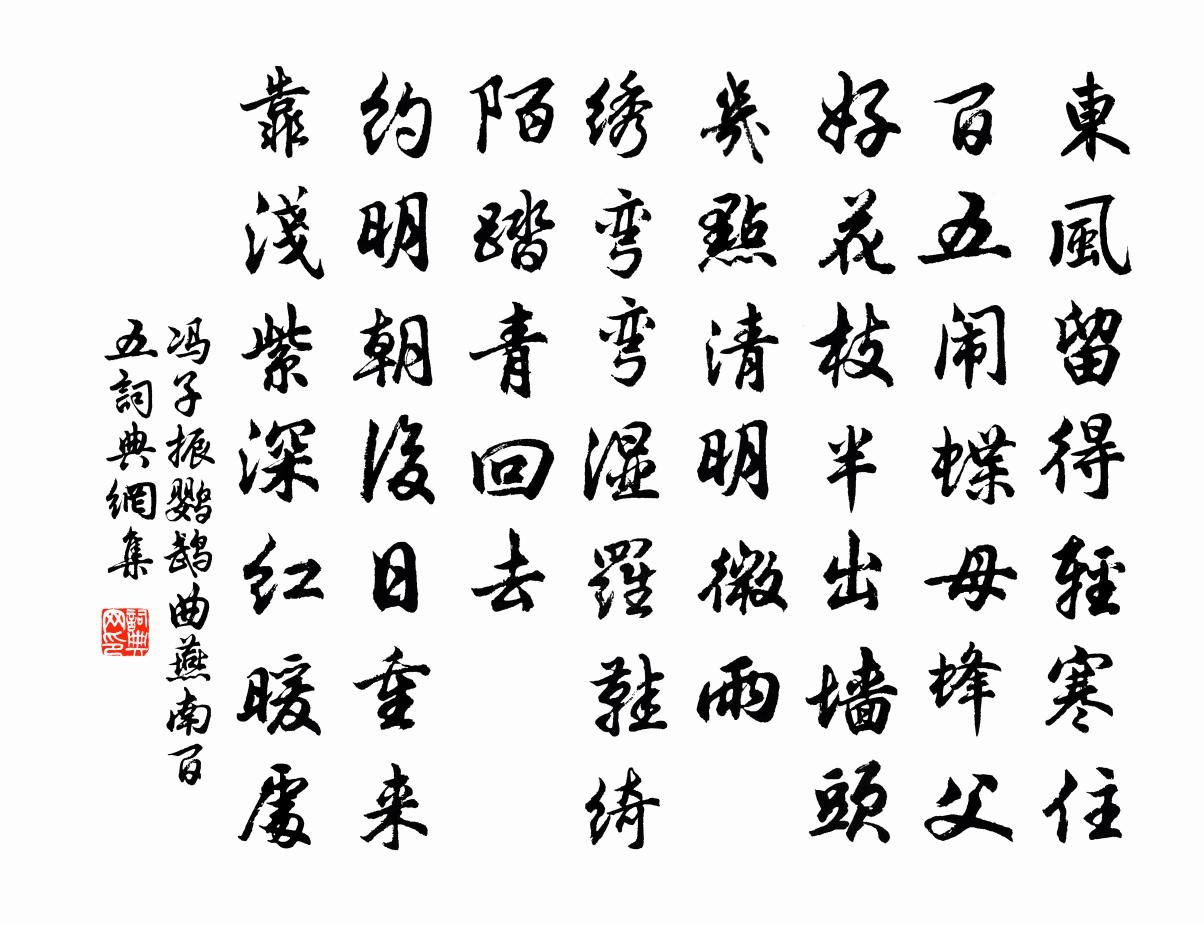 東風留得輕寒住
百五闹蝶母蜂父
好花枝半出墙頭
幾點清明微雨
绣彎彎湿羅鞋綺
陌踏青回去
约明朝後日重来
靠淺紫深红暖處
冯子振鹦鹉曲燕南百
五詞典網集
詞典网印